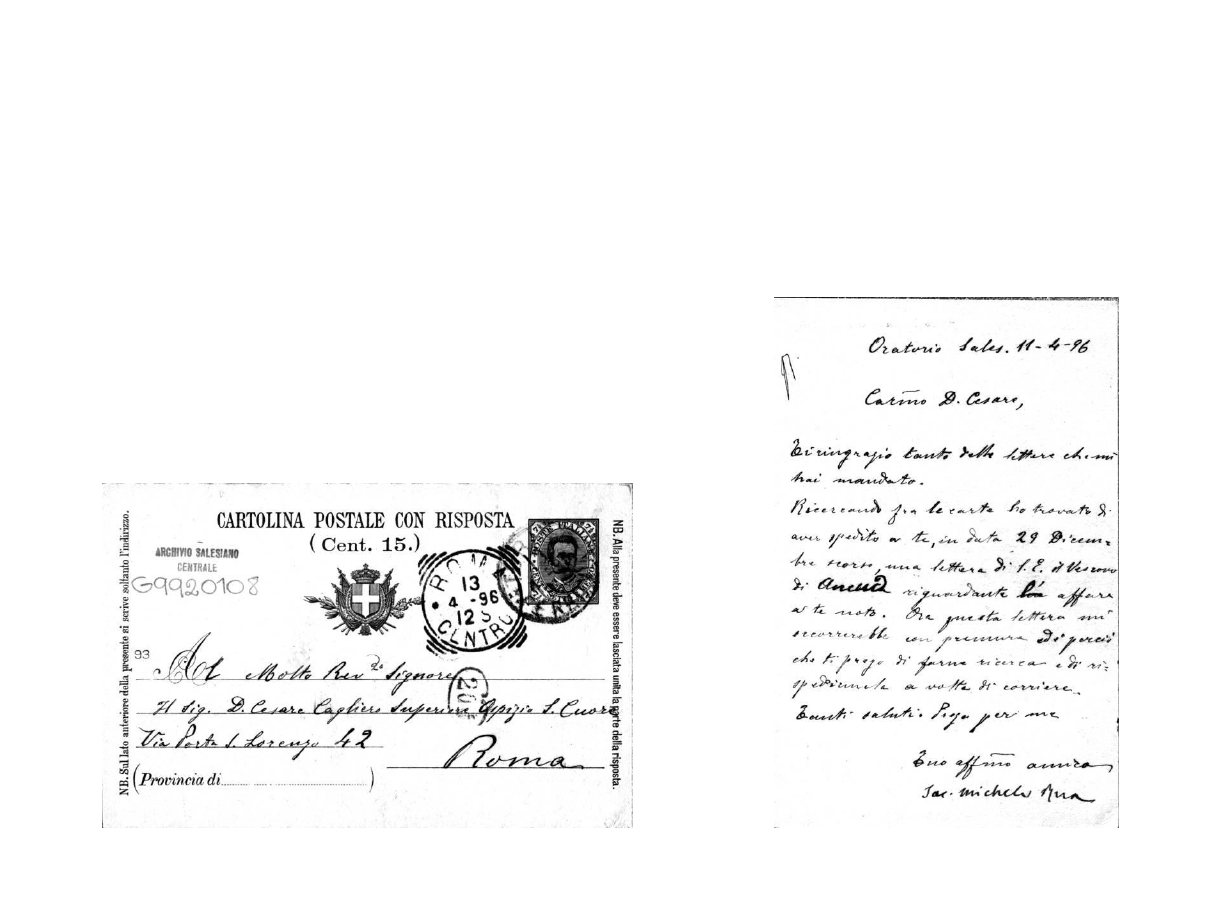 CARTOLINA POSTALE CON RISPOSTA
(Cent. 15.)
ARCHIVIO SALESIANO
CENTRALE
G9920108
ROMA
13
4 -96
12 S
CENTRO
NB. Sul lato anteriore della presente si scrive soltanto l'indirizzo.
NB. Alla presente deve essere lasciata unita la parte della risposta.
93
Al Molto Rev.do Signore
Il Sig. D. Cesare Cagliero Superiore Ospizio S. Cuore
Via Porta S. Lorenzo 42
Roma
(Provincia di )
Oratorio Sales. 11-4-96
Carmo D. Cesare,
Ti ringrazio tanto delle lettere che mi
hai mandato.
Ricercando fra le carte ho trovato di
aver spedito a te, in data 29 Dicem-
bre scorso, una lettera di S. E. il Vescovo
di riguardante affare
a te noto. Ora questa lettera mi
occorrerebbe con premura ed è perciò
che ti prego di farne ricerca e di ri-
spedirmela a volta di corriere.
Tanti saluti. Prega per me
Tuo affmo amico
Sac. Michele Rua